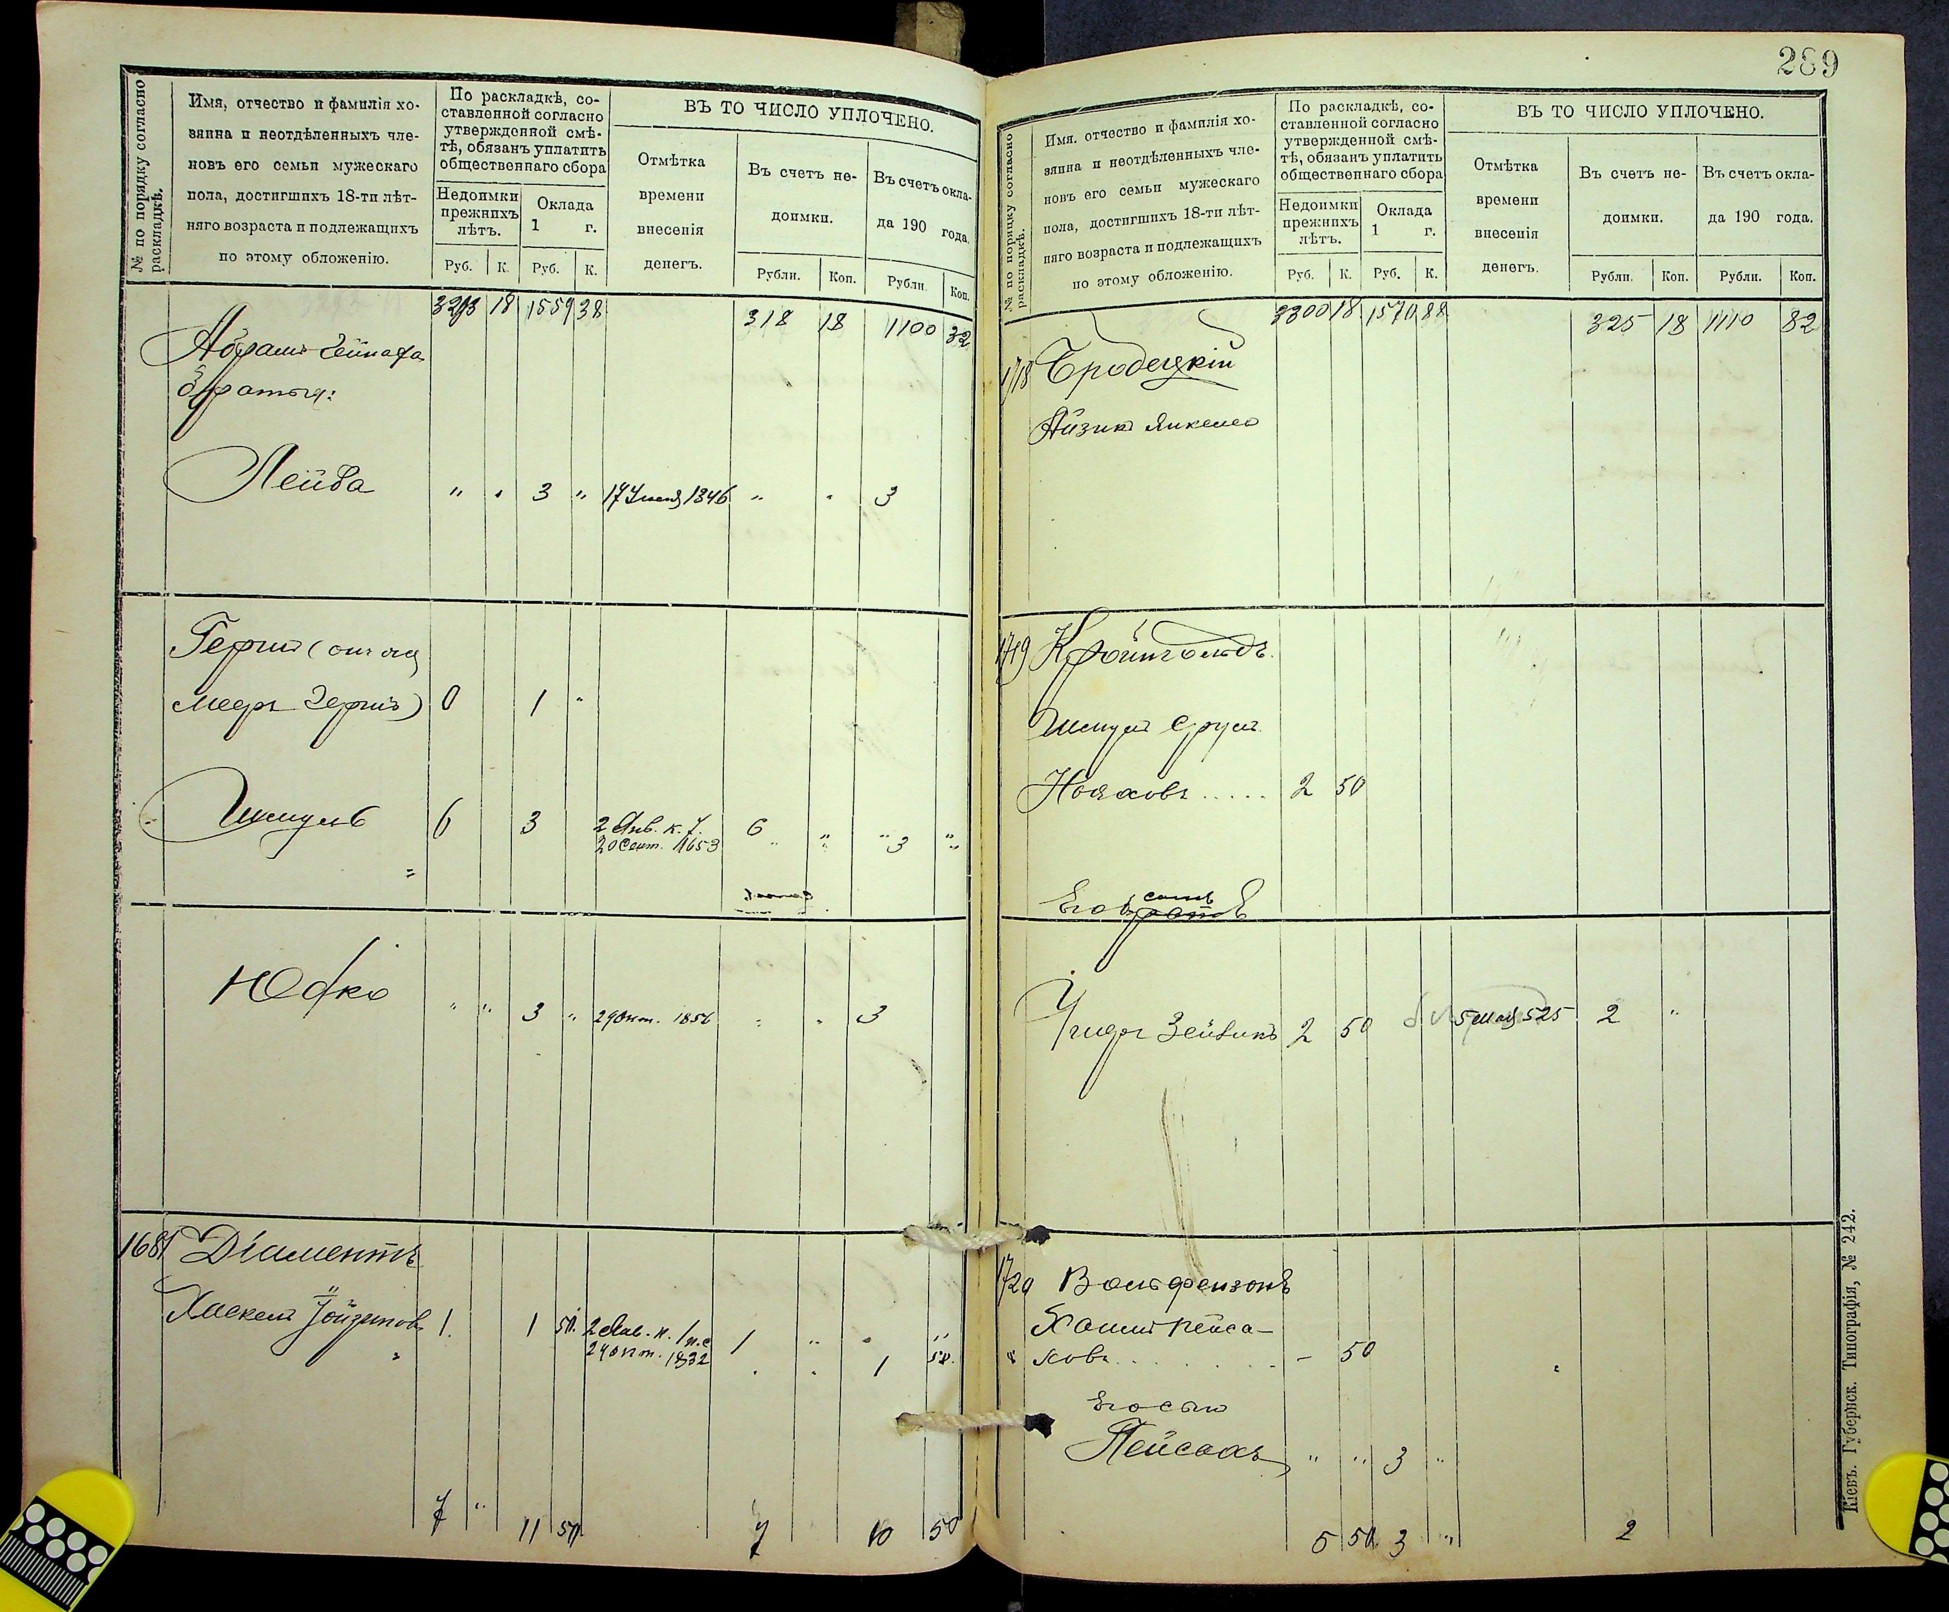 № по порядку согласно
раскладкѣ.
Имя, отчество и фамилія хо-
зяина и неотдѣленныхъ чле-
новъ его семьи мужескаго
пола, достигшихъ 18-ти лѣт-
няго возраста и подлежащихъ
по этому обложенію.
По раскладкѣ, со-
ставленной согласно
утвержденной смѣ-
тѣ, обязанъ уплатить
общественнаго сбора
Недоимки
прежнихъ
лѣтъ.
Оклада
1 г.
Руб. К. Руб. К.
ВЪ ТО ЧИСЛО УПЛОЧЕНО.
Отмѣтка
времени
внесенія
денегъ.
Въ счетъ не-
доимки.
Рубли. Коп.
Въ счетъ окла-
да 190 года.
Рубли. Коп.
3293 18 1559 38 318 18 1100 32
Абрамъ
братья:
Лейба " " 3 " 17 1346 " " 3
Герш
0 1 "
Шмуль 6 3 2 Янв. 6 " " 3 "
20 Сент. 1653
Юфко " " 3 " 29 Окт. 1856 " " 3
1681 Діаментъ
Хаскель 1. 1 50. 2 Янв. 1
29 Окт. 1832 1 50.
7 " 11 50 7 10 50
289
№ по порядку согласно
раскладкѣ.
Имя, отчество и фамилія хо-
зяина и неотдѣленныхъ чле-
новъ его семьи мужескаго
пола, достигшихъ 18-ти лѣт-
няго возраста и подлежащихъ
по этому обложенію.
По раскладкѣ, со-
ставленной согласно
утвержденной смѣ-
тѣ, обязанъ уплатить
общественнаго сбора
Недоимки
прежнихъ
лѣтъ.
Оклада
1 г.
Руб. К. Руб. К.
ВЪ ТО ЧИСЛО УПЛОЧЕНО.
Отмѣтка
времени
внесенія
денегъ.
Въ счетъ не-
доимки.
Рубли. Коп.
Въ счетъ окла-
да 190 года.
Рубли. Коп.
3300 18 1570 88 325 18 1110 82
1718 Бродецкій
Айзикъ Янкелев
1719 Кройнгольдъ
Шмуль Сруль
Нояховъ ..... 2 50
Его сынъ
Зейликъ 2 50 5 мая 525 2 "
1720 Вольфензонъ
Хаимъ Пейса-
ховъ ........ - 50
Его сын
Пейсахъ " " 3 "
5 50 3 " 2
Кіевъ. Губернск. Типографія, № 242.